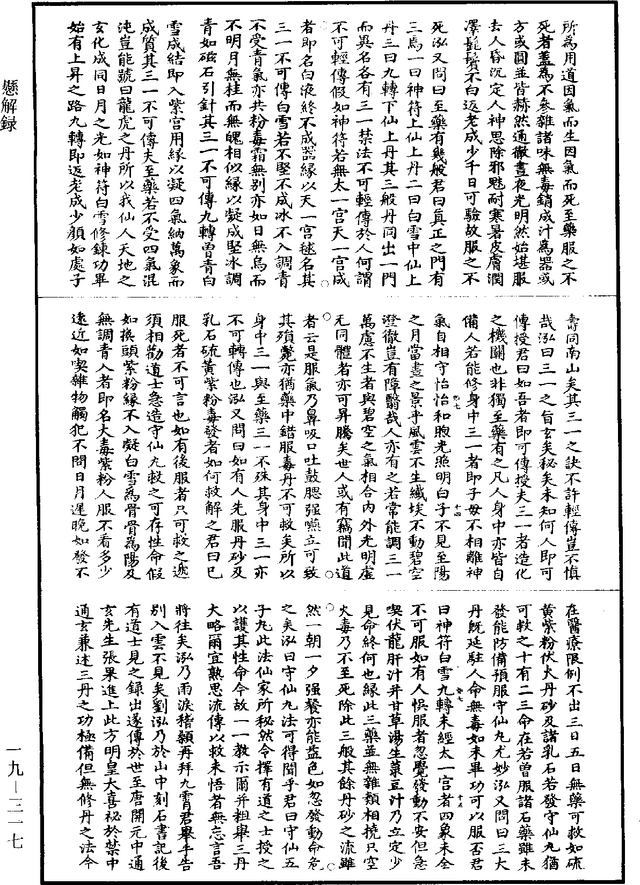 懸解録
一九-三一七
所為用道因氣而生因氣而死至藥服之不
死者蓋為不參雜諸味無毒鎖成汁爲器或
方或圓並皆赫然通徹晝夜光明然始堪服
去人昏沉定人神思除邪魅耐寒暑皮膚潤
澤髭鬢不白返老成少千日可驗故服之不
死泓又問曰至藥有幾般君曰真正之門有
三焉一曰神符上仙上丹二曰白雪中仙上
丹三曰九轉下仙上丹其三般丹同出一門
而異名各有三一禁法不可輕傳於人何謂
不可輕傳假如神符若無太一宮天一宮成
者即名白液終不成器緣以天一宮毬名其
三一不可傳白雪若不堅不成冰不入調青
不受青氣亦共粉毒霜無別亦如日無烏而
不明月無桂而無魄相似緣以凝成堅冰調
青如磁石引針其三一不可傳九轉曾青白
雪成結即入紫宮用緣以凝四氣納萬象而
成質其三一不可傳夫至藥若不受四氣混
沌豈能號曰龍虎之丹所以我仙人天地之
玄化成同日月之光如神符白雪修鍊功畢
始有上昇之路九轉即返老成少顏如處子
壽同南山矣其三一之訣不許輕傳豈不慎
哉泓曰三一之旨玄矣秘矣未知何人即可
傳授君曰如吾者即可傳授夫三一者造化
之機關也非獨至藥有之凡人身中亦皆自
備人若能修身中三一者即子母不相離神
氣自相守怡怡和煦光照明白子不見至陽
之月當晝之景乎風雲不生纖埃不動碧空
澄徹豈有障翳哉人亦有之若常能調三一
萬慮不生者與碧空之氣相合內外光明虛
无同體者亦可昇騰矣世人或有竊聞此道
者云是服氣乃鼻吸口吐鼓腮強嚥立可致
其殞斃亦猶藥中錯服毒丹不可救矣所以
身中三一與至藥三一不殊其身中三一亦
不可轉傳也泓又問曰如有人先服丹砂及
乳石硫黃紫粉毒發者如何救解之君曰已
服死者不可言也如有後服者只可救之遞
須相勸道士急造守仙丸救之可存性命假
如換頭紫粉緣不入凝白雪爲骨骨爲陽及
無調青入者即名大毒紫粉人服不看多少
遠近如喫雜物觸犯不問日月遲晚如發不
在醫療限例不出三日五日無藥可救如硫
黃紫粉伏火丹砂及諸乳石若發守仙丸猶
可救之十有二三命在若曾服諸石藥雖未
發能防備預服守仙丸尤妙泓又問曰三大
丹既延駐人命無毒如未畢功可以服否君
曰神符白雪九轉未經太一宮者四象未全
不可服如有人悞服者忽覺發動不安但急
喫伏龍肝汁并甘草湯生菉豆汁乃立定少
見命終何也緣此三藥並無雜類相撓只空
火毒乃不至死除此三般其餘丹砂之流雖
然一朝一夕強餐亦能益色如忽發動命危
之矣泓曰守仙丸法可得聞乎君曰守仙五
子丸此法仙家所秘然今擇有道之士授之
以護其性命今故一一教示爾并粗舉三丹
大略爾宜熟思流傳以救未悟者無忘言吾
將往矣泓乃雨淚稽顙再拜九霄君舉手告
別入雲不見矣劉泓乃於山中刻石書記後
有道士見之録出遂傳於世至唐開元中通
玄先生張果進上此方明皇大喜秘於禁中
通玄兼述三丹之功極備但無修丹之法今